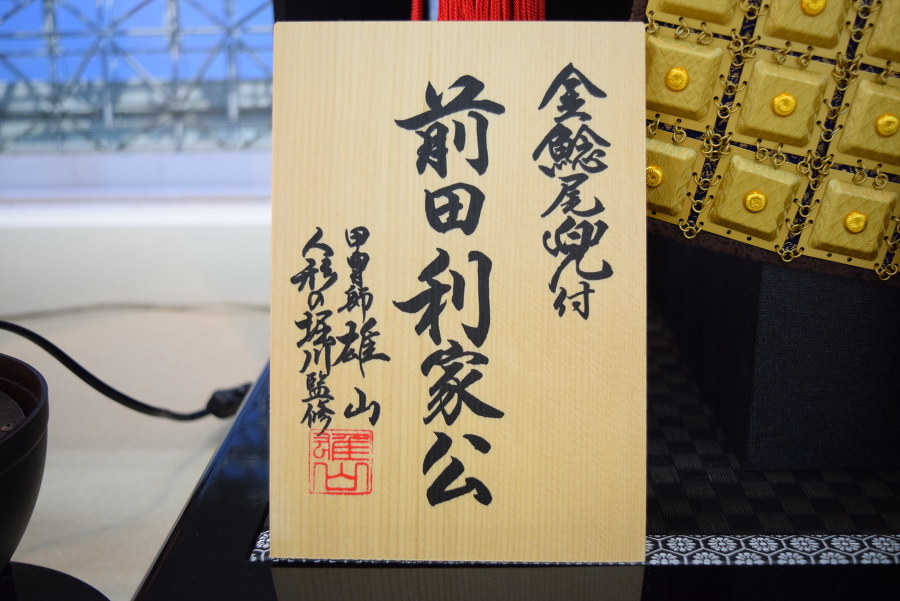 金鯰尾兜付
前田利家公
甲冑師 雄山
人形の堀川監修
雄山